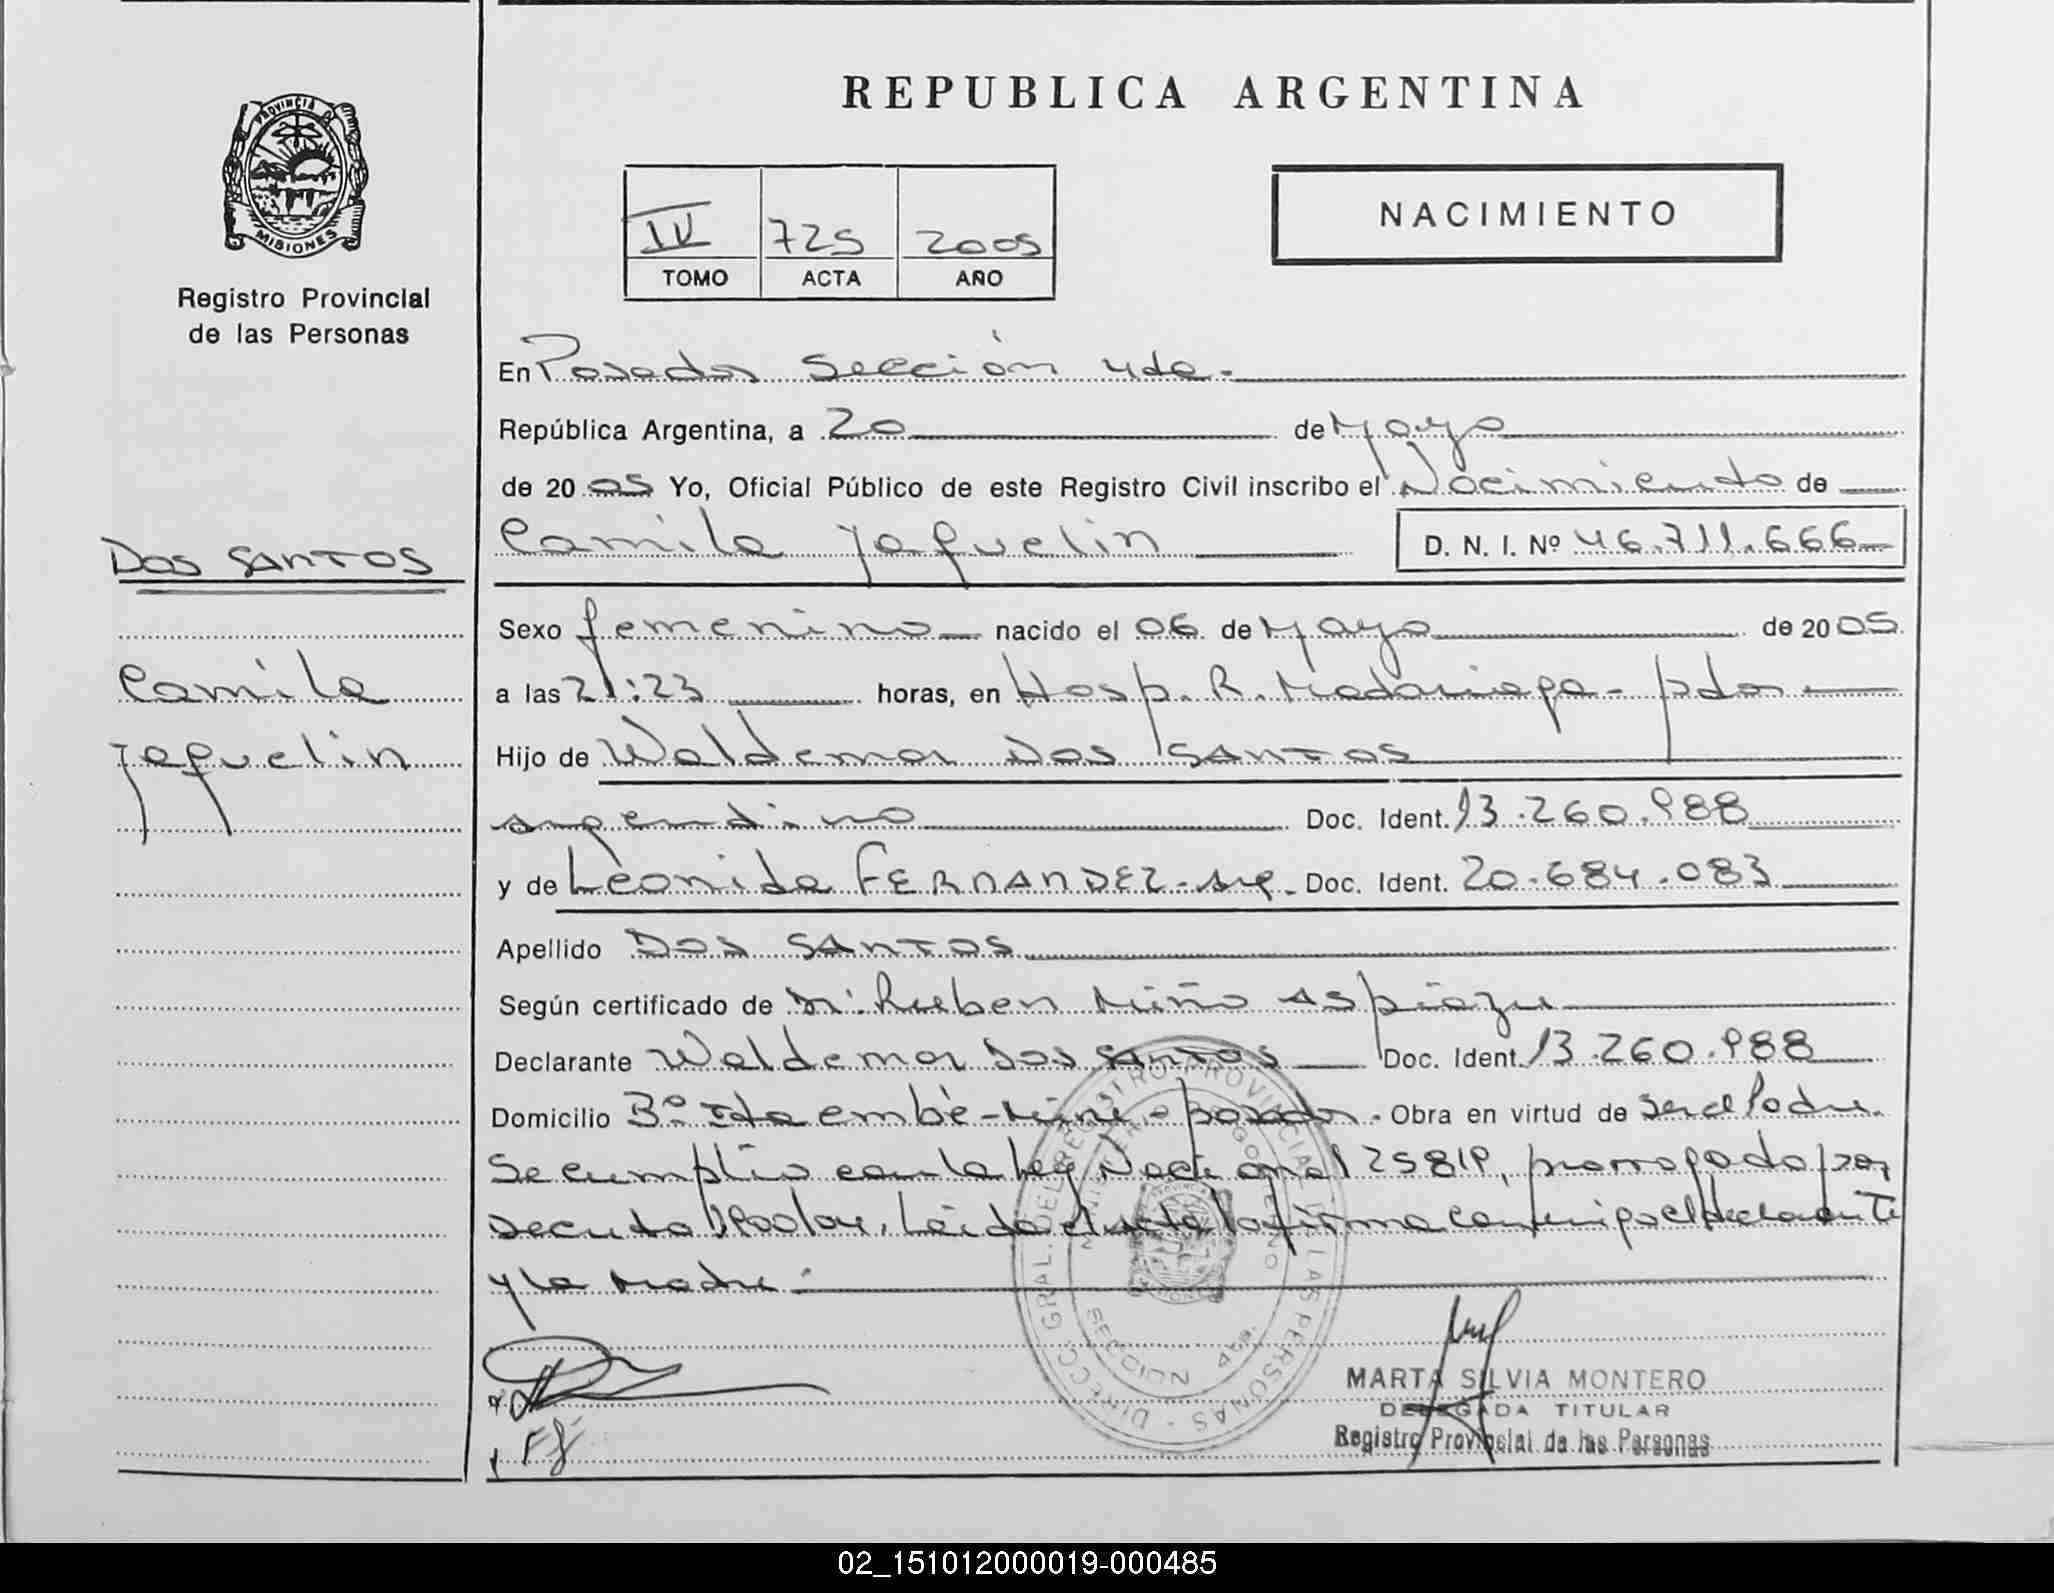 REPUBLICA ARGENTINA
PROVINCIA DE
MISIONES
Registro Provincial
de las Personas
IV 725 2005
TOMO ACTA AÑO
NACIMIENTO
DOS SANTOS
Camila
Jaquelin
En Posadas Sección 4ta.
República Argentina, a 20 de Mayo
de 2005 Yo, Oficial Público de este Registro Civil inscribo el Nacimiento de
Camila Jaquelin D. N. I. Nº 46.711.666
Sexo femenino nacido el 06 de Mayo de 2005
a las 21:23 horas, en Hosp. R. Madariaga - pdas
Hijo de Waldemar DOS SANTOS
argentino Doc. Ident. 13.260.988
y de Leonida FERNANDEZ - arg. Doc. Ident. 20.684.083
Apellido DOS SANTOS
Según certificado de Dr. Ruben Miño Aspiazu
Declarante Waldemar DOS SANTOS Doc. Ident. 13.260.988
Domicilio Bº Ita embé - Miní - posadas. Obra en virtud de ser el Padre.
Se cumplio con la Ley Nacional 25819, prorrogado por
decreto Leida el acta la firma conmigo el declarante
y la Madre.
DIRECC. GRAL. DEL REGISTRO PROVINCIAL DE LAS PERSONAS
MINISTERIO GOBIERNO
SECCION 4ta.
MARTA SILVIA MONTERO
DELEGADA TITULAR
Registro Provincial de las Personas
02_151012000019-000485